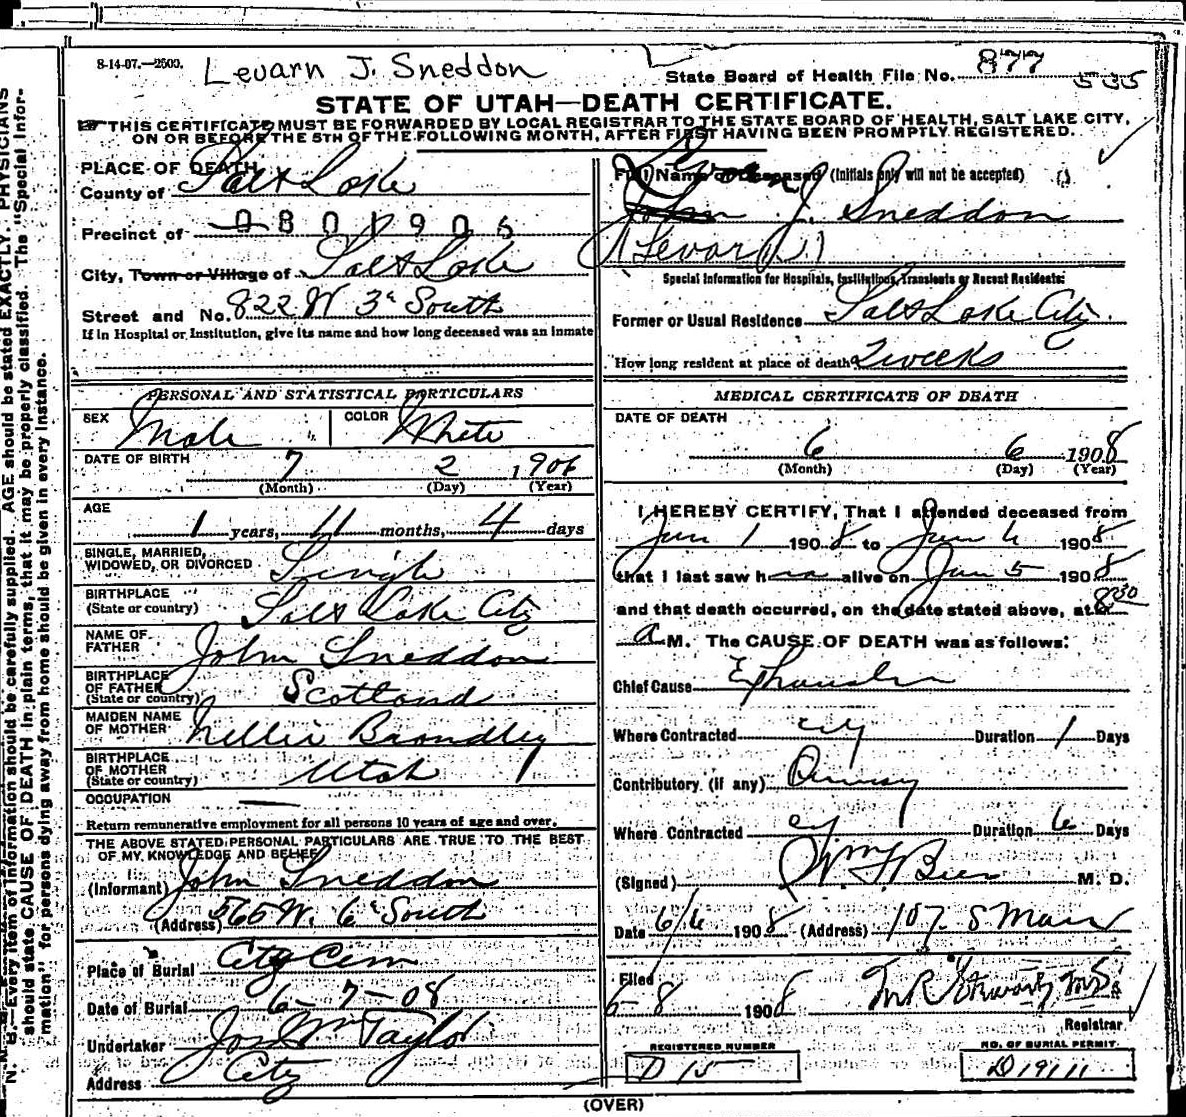 8-14-07.—2500.
Levarn J. Sneddon
State Board of Health File No. 877
535
STATE OF UTAH—DEATH CERTIFICATE.
THIS CERTIFICATE MUST BE FORWARDED BY LOCAL REGISTRAR TO THE STATE BOARD OF HEALTH, SALT LAKE CITY,
ON OR BEFORE THE 5TH OF THE FOLLOWING MONTH, AFTER FIRST HAVING BEEN PROMPTLY REGISTERED.
PLACE OF DEATH
County of Salt Lake
Precinct of 0801906
City, Town or Village of Salt Lake
Street and No. 822 W 3d South
If in Hospital or Institution, give its name and how long deceased was an inmate
Full Name of Deceased (Initials only will not be accepted)
John J. Sneddon
(Levarn)
Special Information for Hospitals, Institutions, Transients or Recent Residents:
Former or Usual Residence Salt Lake City.
How long resident at place of death 2 weeks
PERSONAL AND STATISTICAL PARTICULARS
SEX Male COLOR White
DATE OF BIRTH 7 2 1906
(Month) (Day) (Year)
AGE
1 years, 11 months, 4 days
SINGLE, MARRIED,
WIDOWED, OR DIVORCED Single
BIRTHPLACE
(State or country) Salt Lake City
NAME OF
FATHER John Sneddon
BIRTHPLACE
OF FATHER
(State or country) Scotland
MAIDEN NAME
OF MOTHER Nellie Brandley
BIRTHPLACE
OF MOTHER
(State or country) Utah
OCCUPATION —
Return remunerative employment for all persons 10 years of age and over.
THE ABOVE STATED PERSONAL PARTICULARS ARE TRUE TO THE BEST
OF MY KNOWLEDGE AND BELIEF
(Informant) John Sneddon
(Address) 565 W. 6 South
Place of Burial City Cem
Date of Burial 6-7-08
Undertaker Jos Wm Taylor
Address City
MEDICAL CERTIFICATE OF DEATH
DATE OF DEATH
6 6 1908
(Month) (Day) (Year)
I HEREBY CERTIFY, That I attended deceased from
Jun 1 1908 to Jun 6 1908
that I last saw h alive on Jun 5 1908
and that death occurred, on the date stated above, at 8 30
a M. The CAUSE OF DEATH was as follows:
Chief Cause Exhaustion
Where Contracted city Duration 1 Days
Contributory (if any)
Where Contracted city Duration 6 Days
(Signed) Wm F Beer M. D.
Date 6/6 1908 (Address) 107 S Main
Filed
6-8 1908
Registrar
REGISTERED NUMBER
D 15
NO. OF BURIAL PERMIT
D 19111
(OVER)
N. B.—Every item of information should be carefully supplied. AGE should be stated EXACTLY. PHYSICIANS
should state CAUSE OF DEATH in plain terms, that it may be properly classified. The "Special Infor-
mation" for persons dying away from home should be given in every instance.